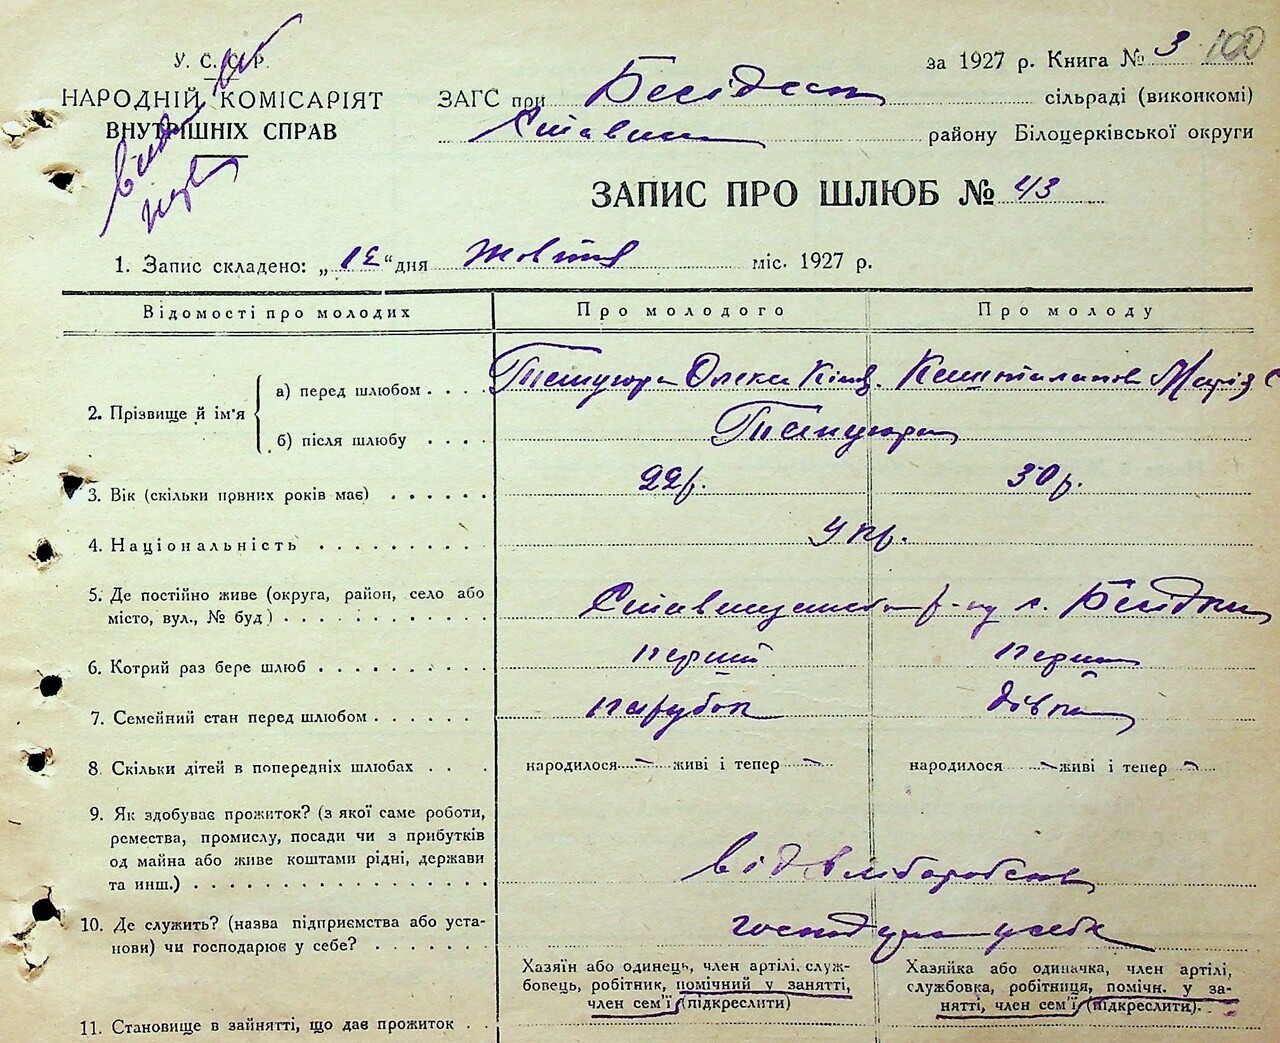 У. С. С. Р.
НАРОДНІЙ КОМІСАРІЯТ
ВНУТРІШНІХ СПРАВ
за 1927 р. Книга № 3 100
ЗАГС при сільраді (виконкомі)
району Білоцерківської округи
ЗАПИС ПРО ШЛЮБ № 43
1. Запис складено: „12“ дня Жовтня міс. 1927 р.
Відомості про молодих Про молодого Про молоду
2. Прізвище й ім'я
а) перед шлюбом . . . . Олекса Марія
б) після шлюбу . . . .
3. Вік (скільки повних років має) . . . . . . 22 р. 30 р.
4. Національність . . . . . . . . . . Укр.
5. Де постійно живе (округа, район, село або
місто, вул., № буд) . . . . . . . . . . . . р-ну с.
6. Котрий раз бере шлюб . . . . . . . . . . перший перший
7. Семейний стан перед шлюбом . . . . . . . парубок дівка
8. Скільки дітей в попередніх шлюбах . . . . народилося — живі і тепер — народилося — живі і тепер —
9. Як здобуває прожиток? (з якої саме роботи,
ремества, промислу, посади чи з прибутків
од майна або живе коштами рідні, держави
та инш.) . . . . . . . . . . . . . . . . . від
10. Де служить? (назва підприємства або уста-
нови) чи господарює у себе? . . . . . . . у себе
Хазяїн або одинець, член артілі, служ-
бовець, робітник, помічний у занятті,
член сем'ї (підкреслити)
Хазяйка або одиначка, член артілі,
службовка, робітниця, помічн. у за-
нятті, член сем'ї (підкреслити).
11. Становище в зайнятті, що дає прожиток . .